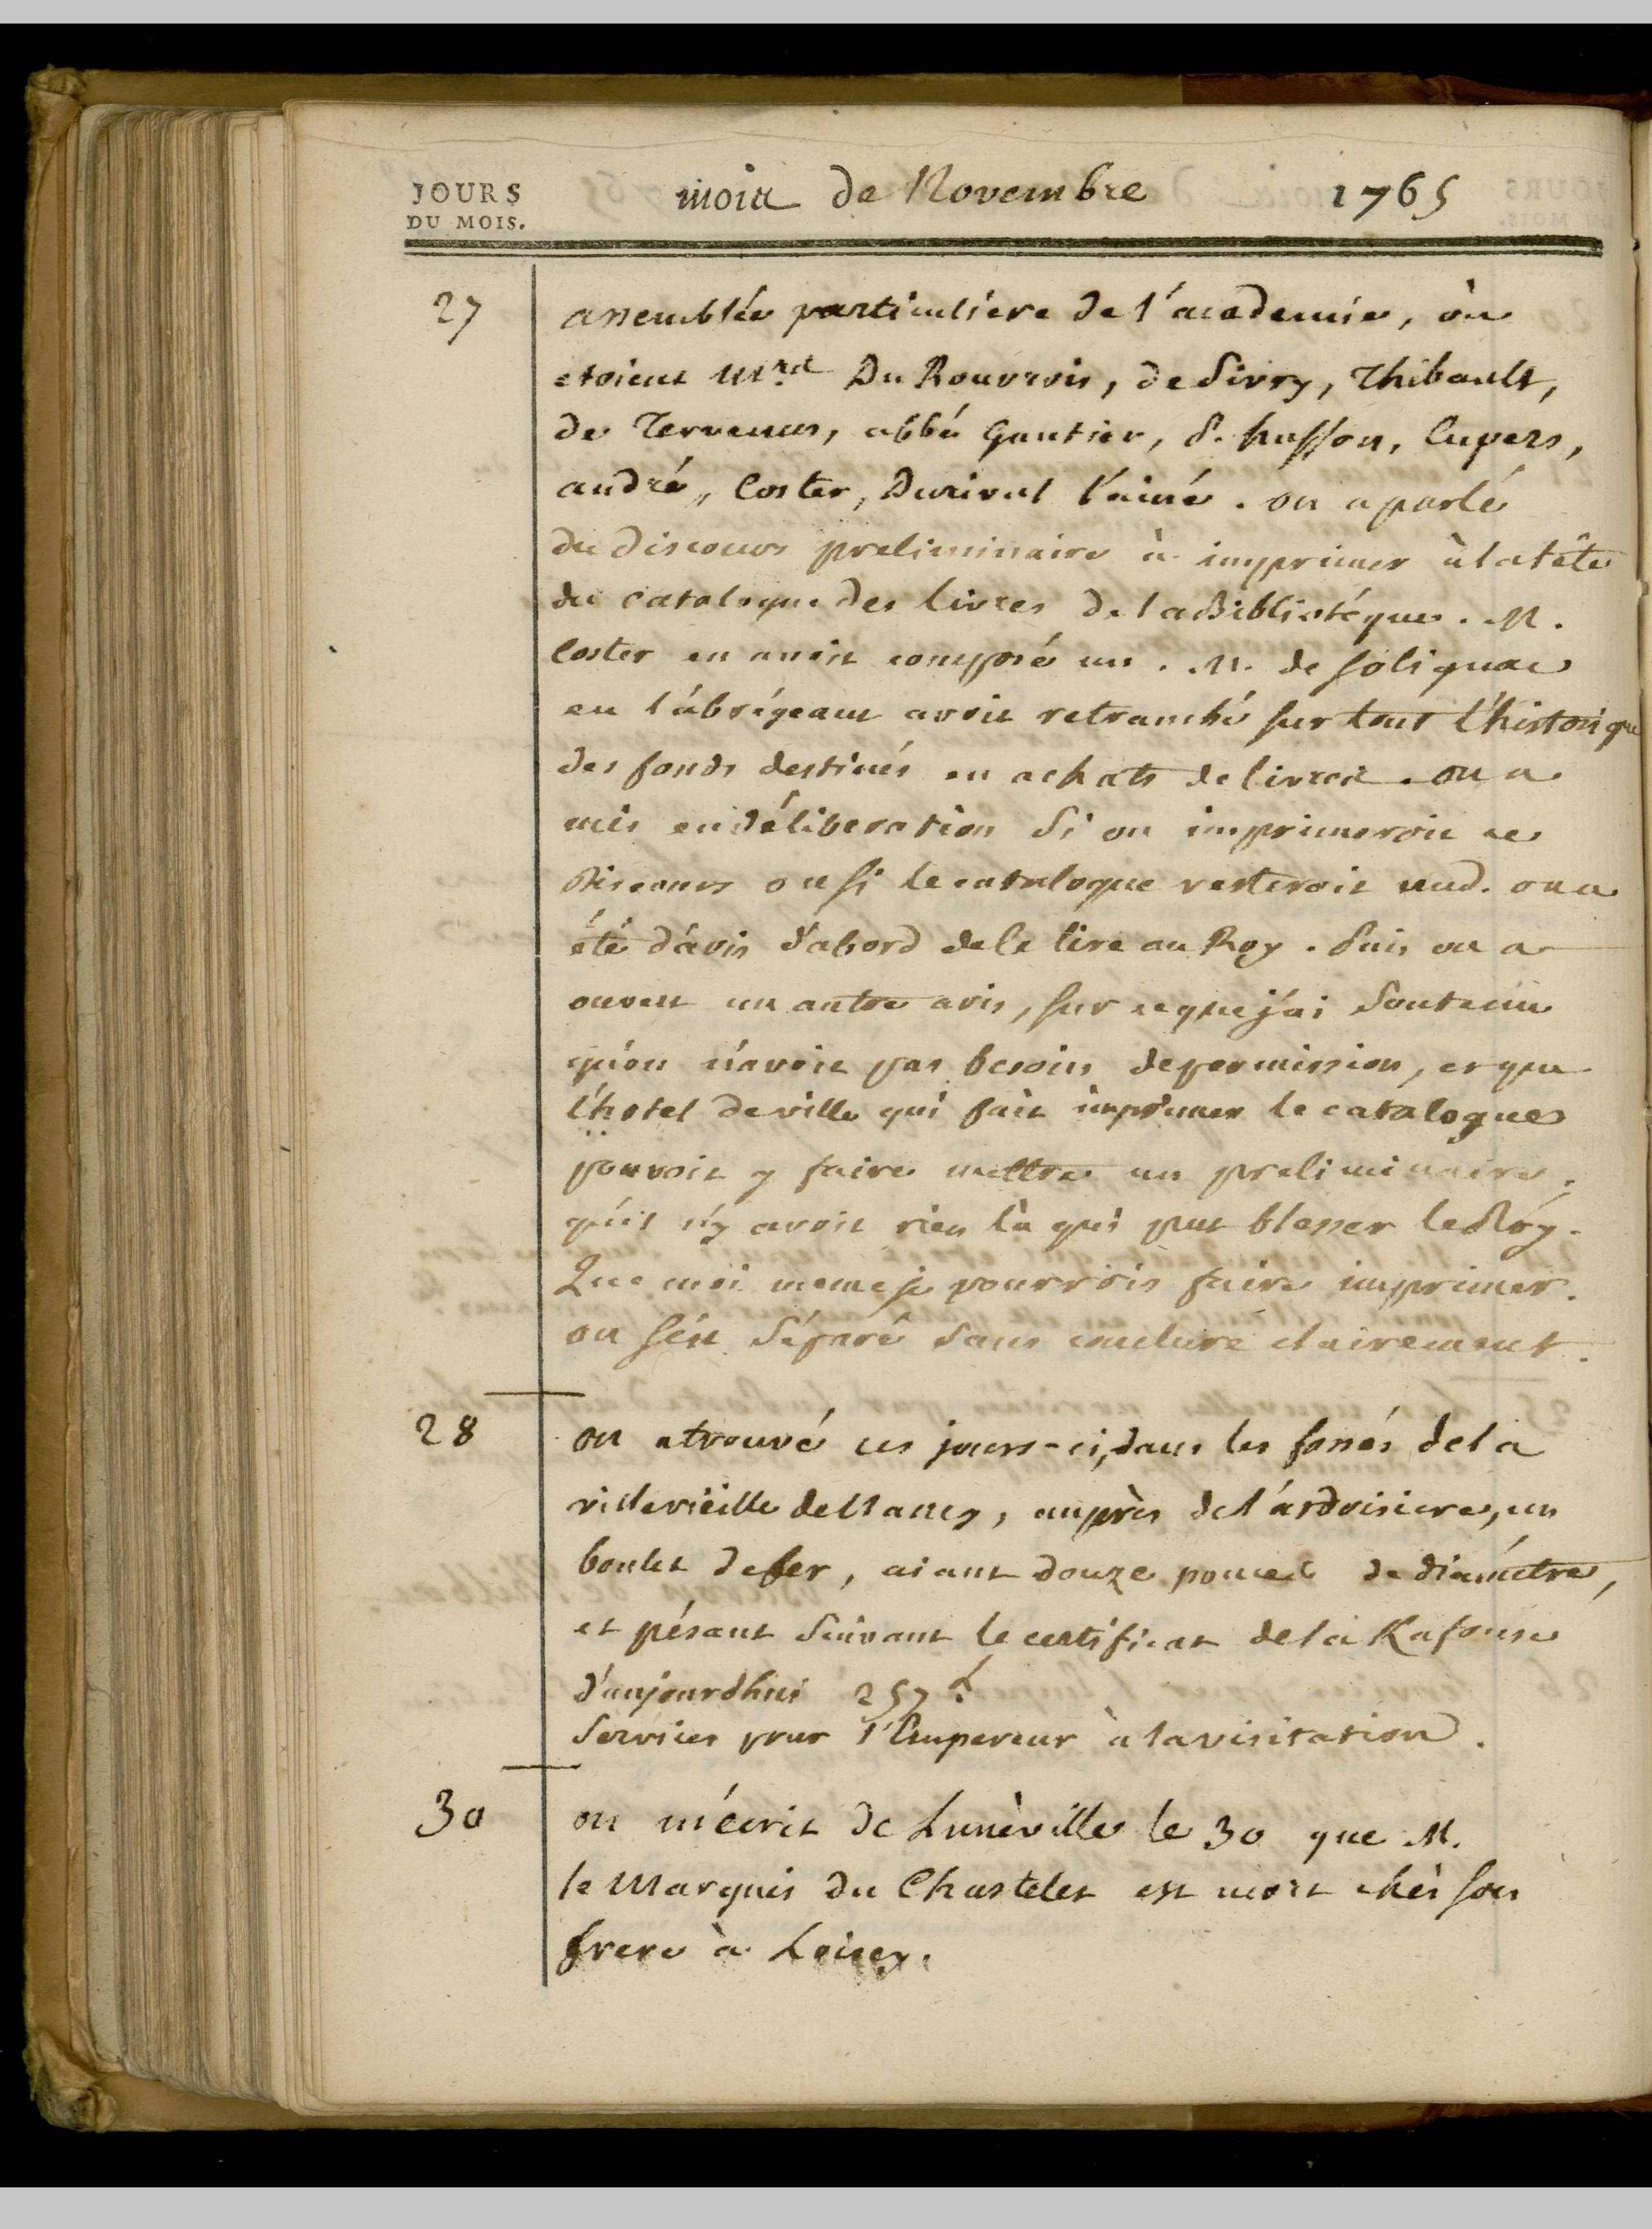 JOURS
DU MOIS.
mois de Novembre 1765
27
assemblée particuliére de l'academie, où
etoient Mrs. Du Rouvrois, de Sivry, Thibault,
de Tervenus, abbé Gautier, P. husson, Cupers,
andré, Coster, Durival l'ainé. on a parlé
du discours preliminaire à imprimer à la tête
du catalogue des livres de la Bibliotéque. M.
Coster en avoit composé un. M. de Solignac
en l'abrégeant avoit retranché sur tout l'historique
des fonds destinés en achats de livres. on a
mis en déliberation Si on imprimeroit ce
Discours ou si le catalogue resteroit nud. on a
été d'avis d'abord de le lire au Roy. Puis on a
ouvert un autre avis, sur ce que j'ai Soutenu
qu'on n'avoit pas besoin de permission, et que
l'hotel de ville qui fait imprimer le catalogue
pouvoit y faire mettre un preliminaire.
qu'il n'y avoit rien là qui put blesser le Roy.
Que moi meme je pourrois faire imprimer.
on s'est Séparé Sans conclure clairement.
28
on a trouvé ces jours-ci, dans les fossés de la
ville vieille de Nancy, auprès de l'ardoisiere, un
boulet de fer, aiant douze pouces de diamétre,
et pésant Suivant le certificat de la Kafouse
d'aujourdhui 257 l.
Services pour l'Empereur à la visitation.
30
on m'écrit de Lunéville le 30 que M.
le Marquis du Chastelet est mort chés son
frere à Loisey.